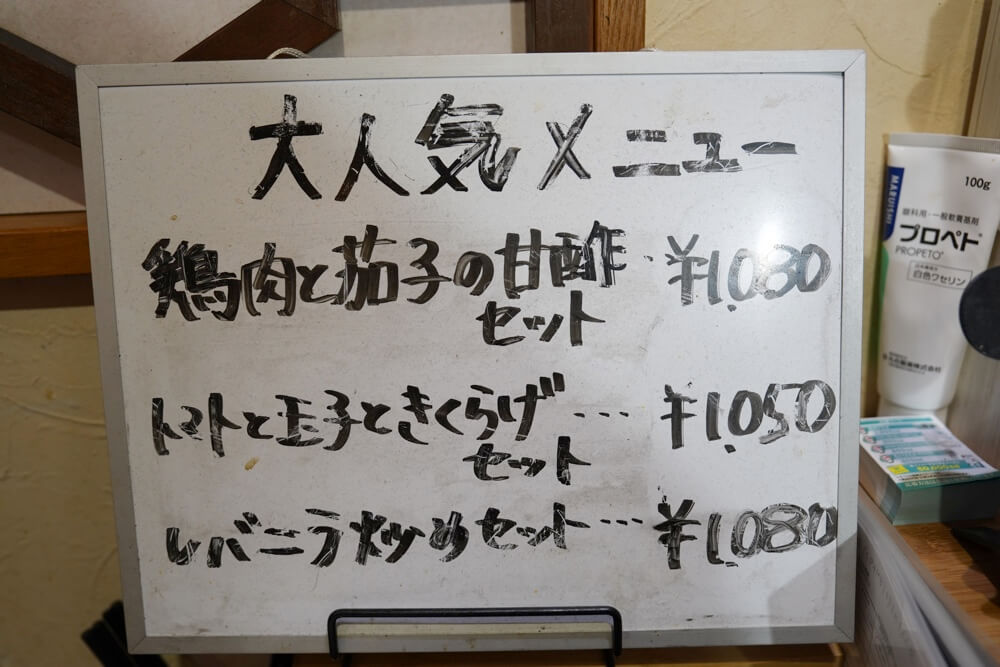 大人気メニュー
鶏肉と茄子の甘酢 ¥1,030
セット
トマトと玉子ときくらげ…‥ ¥1,050
セット
レバニラ炒めセット‥‥ ¥1,080
MARUISHI
100g
眼科用・一般軟膏基剤
プロペト
PROPETO
白色ワセリン